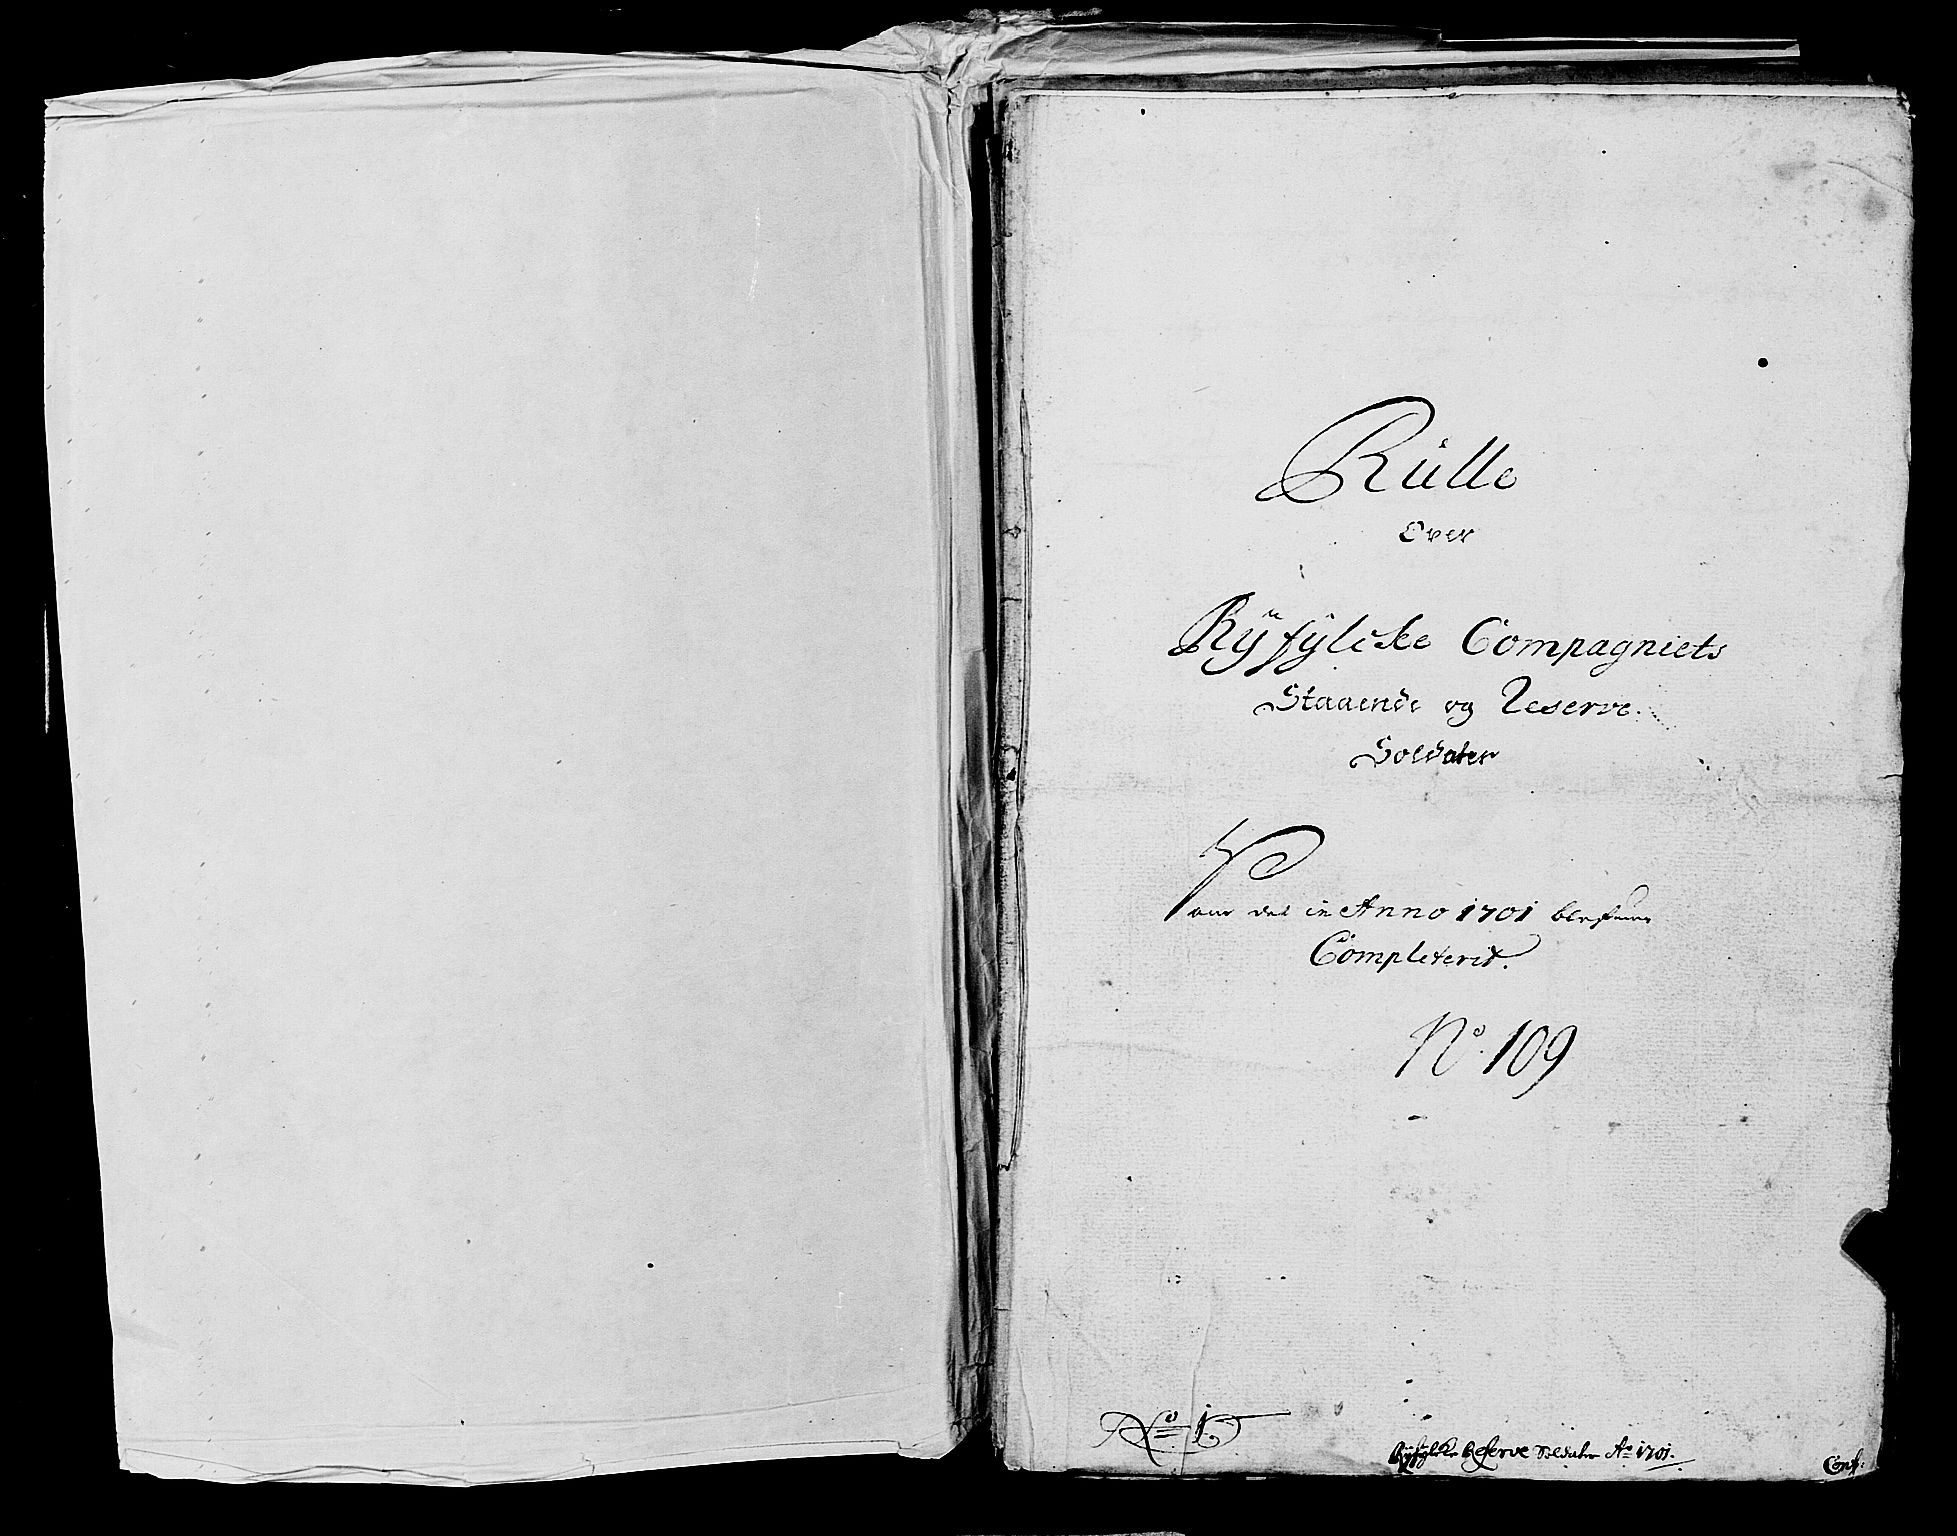 Rülle
Over
Ryfylcke Compagniets
Staaende og Reserve
Soldater
Anno 1701
Completerit.
No. 109
No 1
Ryfylcke Reserve Soldater Ao 1701.
Conf: